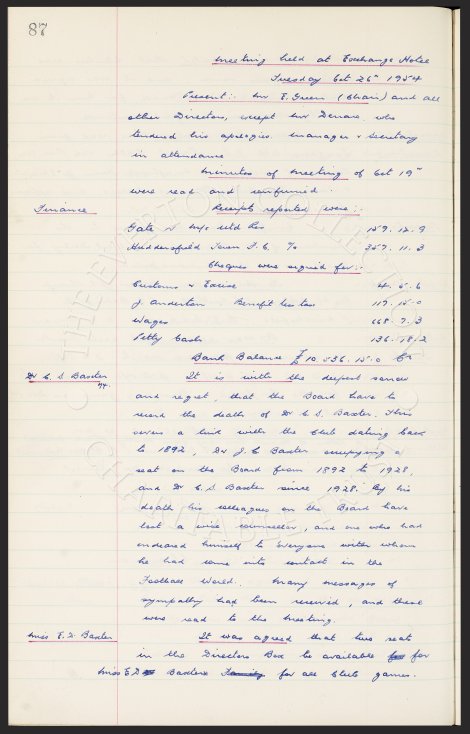 87
Meeting held at Exchange Hotel
Tuesday Oct 26th 1954
Present:- Mr E. Green (Chair) and all
other Directors, except Mr Searle who
tendered his apologies. Manager & Secretary
in attendance
Minutes of Meeting of Oct 19th
were read and confirmed.
Finance
Receipts reported were:-
Gate v M/c Utd Res 159. 12. 9
Huddersfield Town F.C. 357. 11. 3
Cheques were signed for:-
Customs & Excise 4. 5. 6
J. Anderton Benefit less tax 117. 15. 0
Wages 668. 7. 3
Petty Cash 136. 18. 2
Bank Balance £10.536. 15. 0 Cr
Dr C. S. Baxter
It is with the deepest sorrow
and regret, that the Board have to
record the death of Dr C. S. Baxter. This
severs a link with the Club dating back
to 1892, Dr J. C. Baxter occupying a
seat on the Board from 1892 to 1928,
and Dr C. S. Baxter since 1928. By his
death his colleagues on the Board have
lost a wise counsellor, and one who had
endeared himself to everyone with whom
he had come into contact in the
Football World. Many messages of
sympathy had been received, and these
were read to the Meeting.
Miss E. D. Baxter
It was agreed that two seats
in the Directors Box be available for for
Miss E D Baxters Family for all Club games.
THE EVERTON COLLECTION
CHARITABLE TRUST